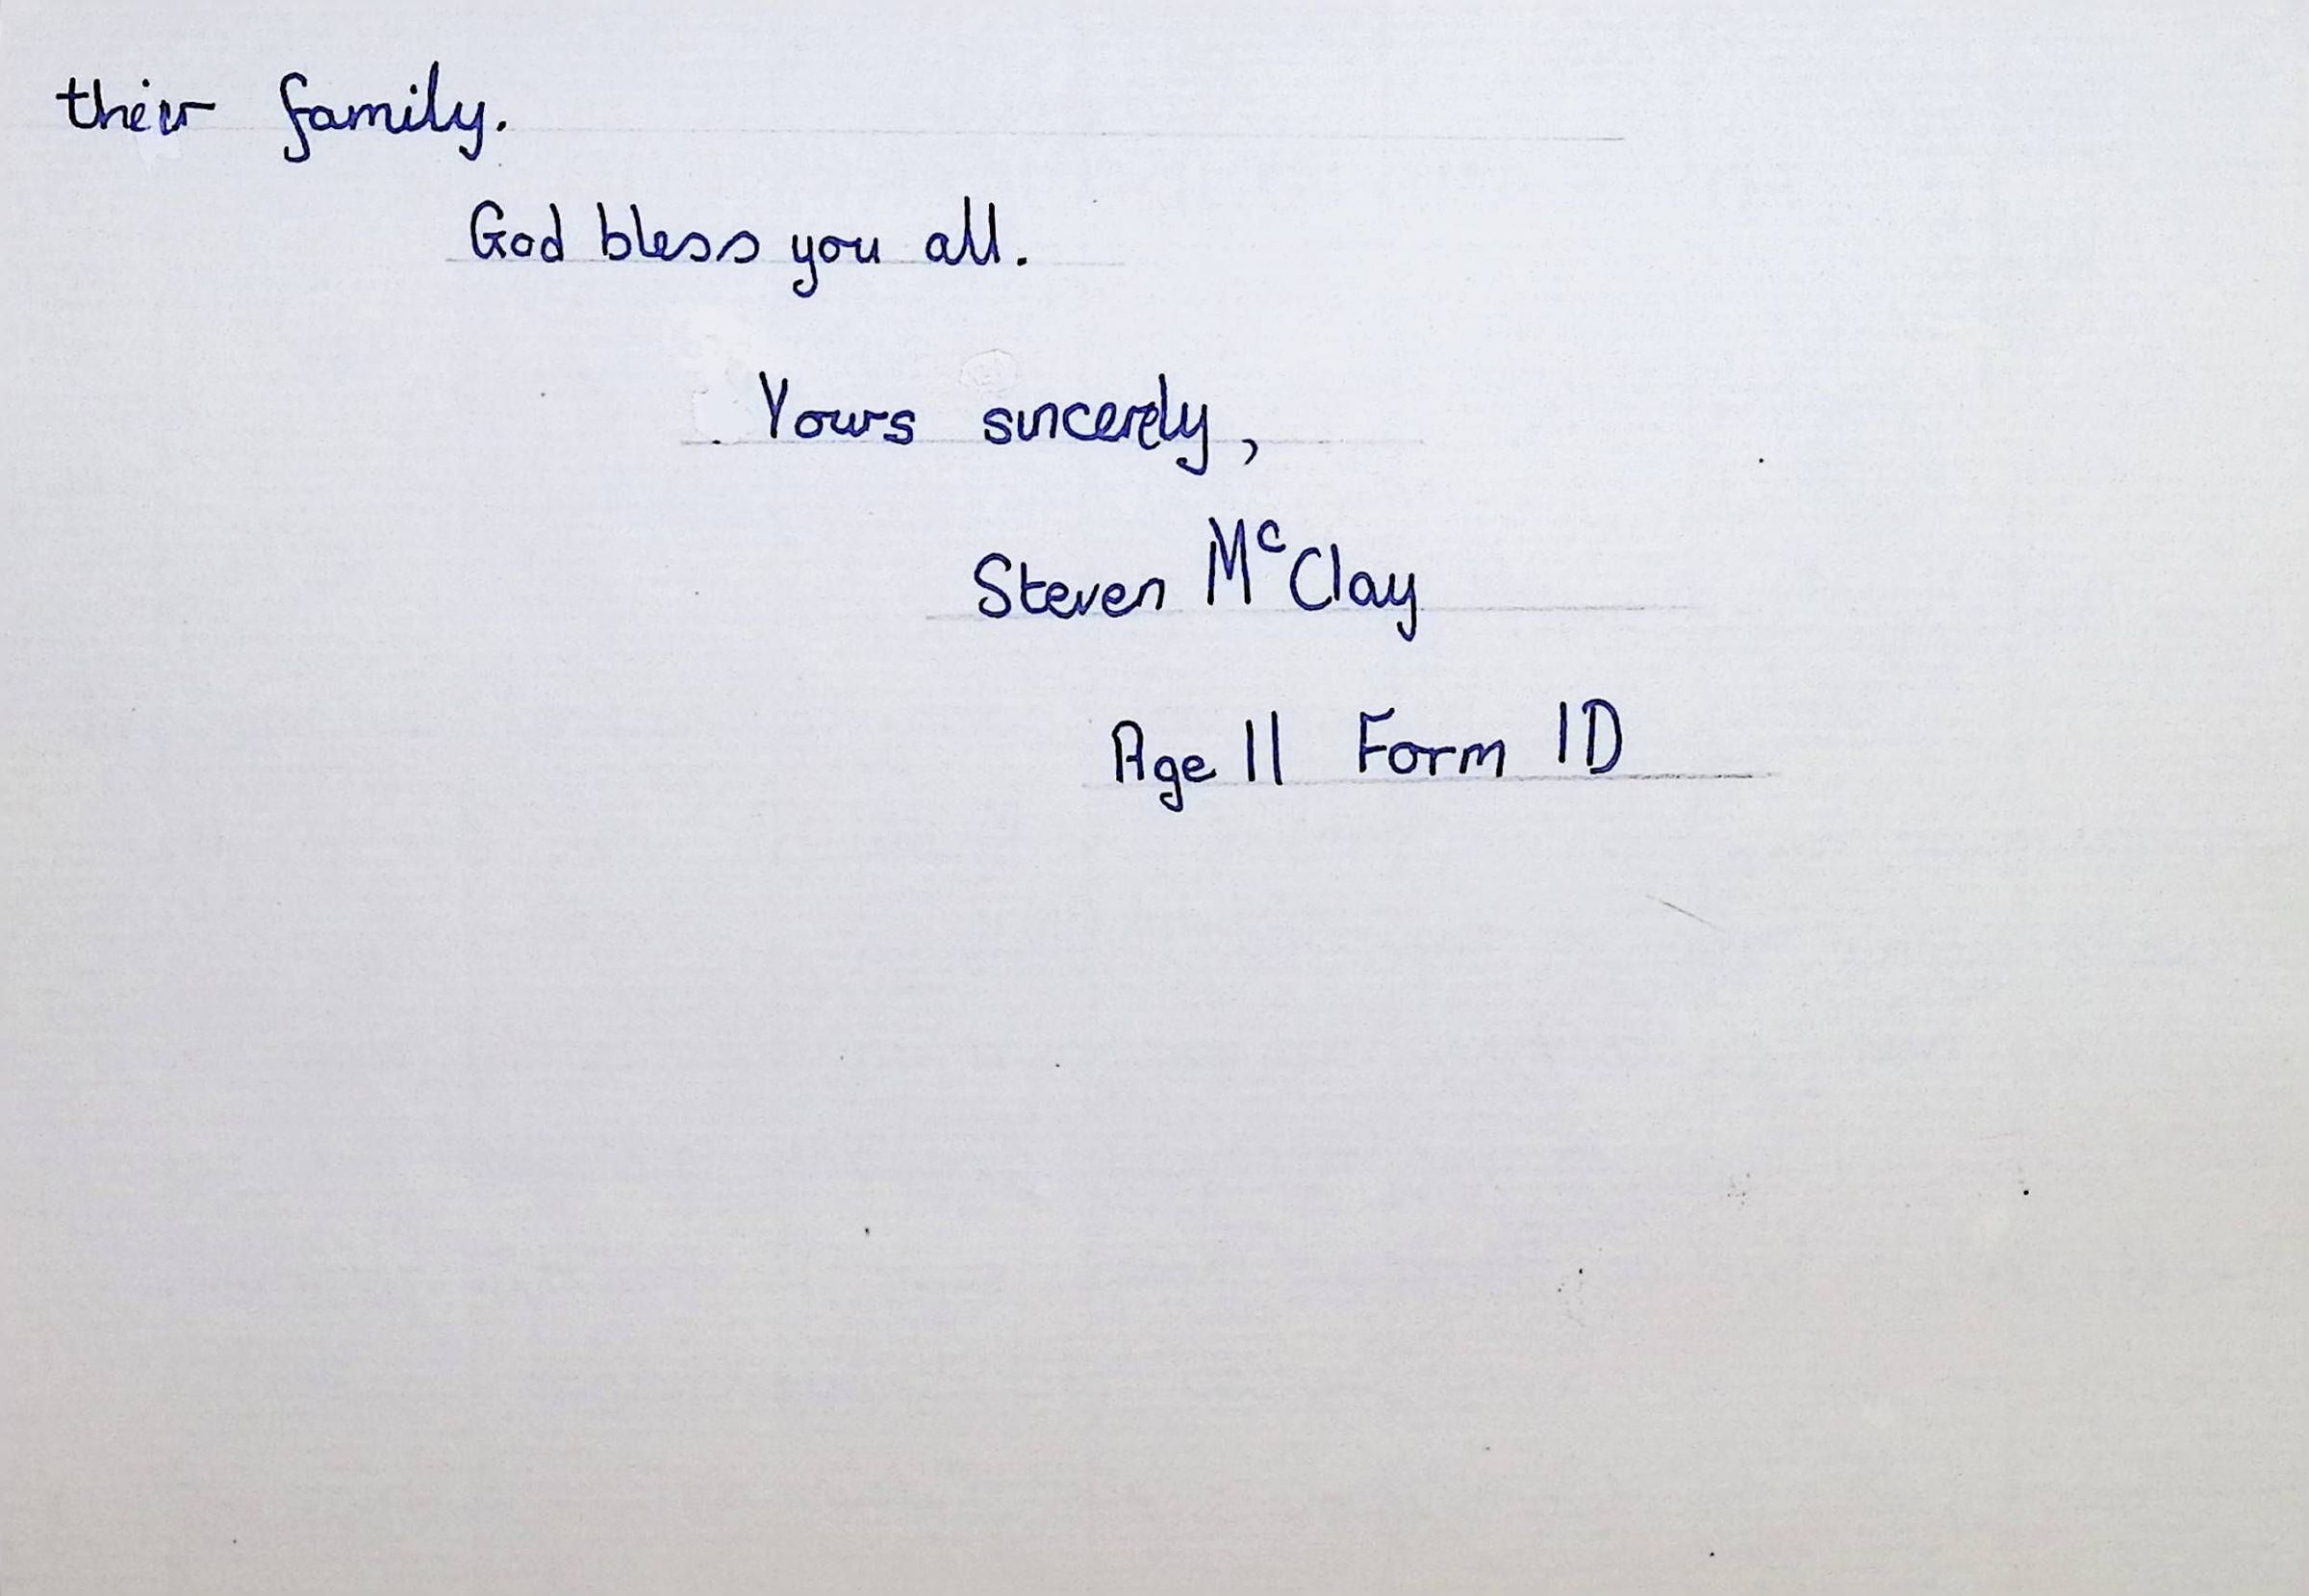 their family.
God bless you all.
Yours sincerely,
Steven McClay
Age 11 Form 1D